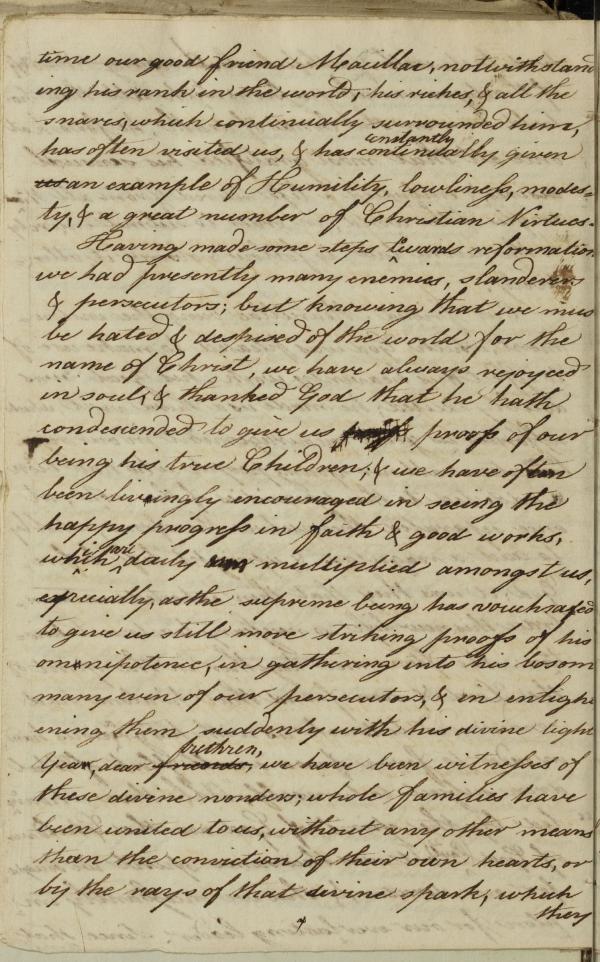 time our good friend Macillac, notwithstand
ing his rank in the world, his riches, & all the
snares, which continually surrounded him,
has often visited us, & has constantly continually given
us an example of Humility, lowliness, modes-
ty, & a great number of Christian Virtues.
Having made some steps towards reformation
we had presently many enemies, slanderers
& persecutors; but knowing that we mus
be hated & despised of the world for the
name of Christ, we have always rejoyced
in soul; & thanked God that he hath
condescended to give us proofs of our
being his true Children; & we have often
been livingly encouraged in seeing the
happy progress in faith & good works,
which are daily multiplied amongst us,
especially, as the supreme being has vouchsafed
to give us still more striking proofs of his
omnipotence, in gathering into his bosom
many even of our persecutors, & in enligh
ening them suddenly with his divine light
Yea, dear friends, brethren, we have been witnesses of
these divine wonders; whole families have
been united to us, without any other means
than the conviction of their own hearts, or
by the rays of that divine spark, which
they